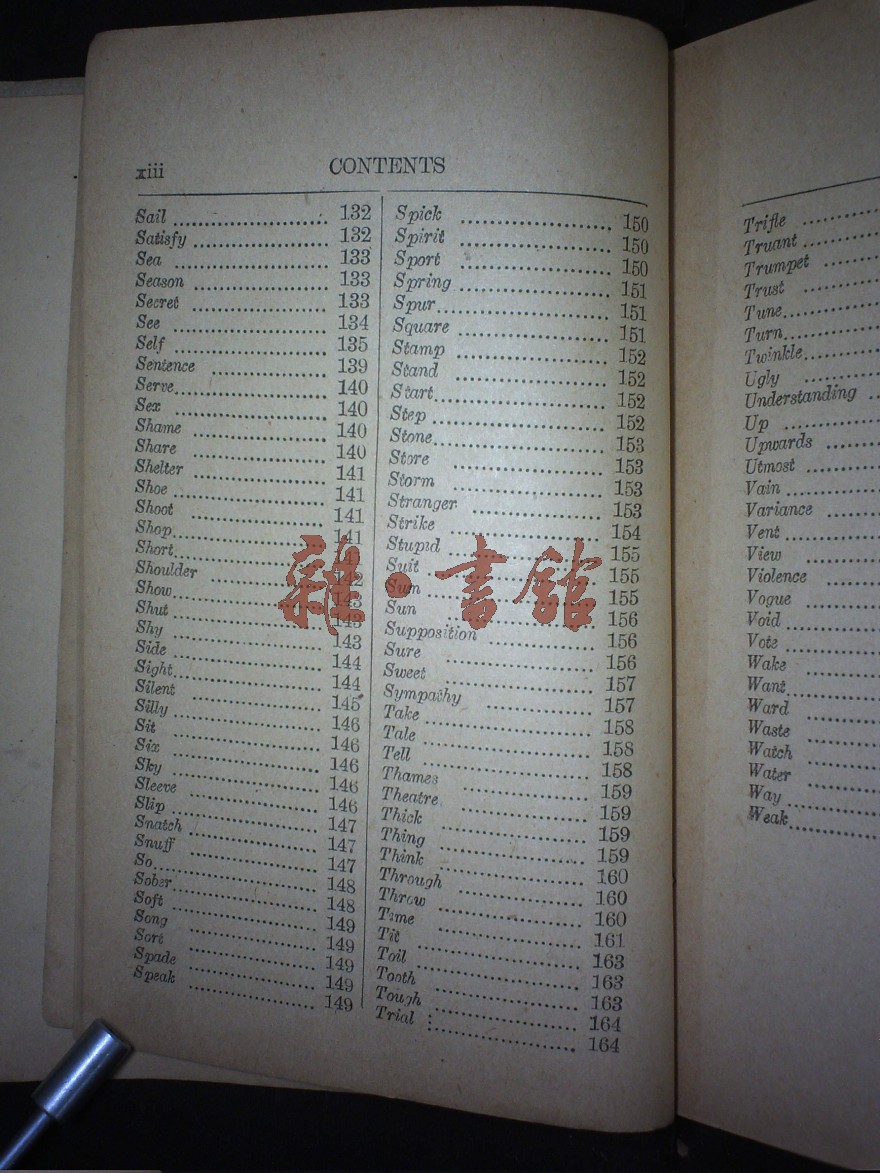 xiii CONTENTS
Sail 132
Satisfy 132
Sea 133
Season 133
Secret 133
See 134
Self 135
Sentence 139
Serve 140
Sex 140
Shame 140
Share 140
Shelter 141
Shoe 141
Shoot 141
Shop 141
Short
Shoulder 142
Show 143
Shut 143
Shy 143
Side 144
Sight 144
Silent 145
Silly 146
Sit 146
Six 146
Sky 146
Sleeve 146
Slip 147
Snatch 147
Snuff 147
So 148
Sober 148
Soft 149
Song 149
Sort 149
Spade 149
Speak 149
Spick 150
Spirit 150
Sport 150
Spring 151
Spur 151
Square 151
Stamp 152
Stand 152
Start 152
Step 152
Stone 153
Store 153
Storm 153
Stranger 153
Strike 154
Stupid 155
Suit 155
Sum 155
Sun 156
Supposition 156
Sure 156
Sweet 157
Sympathy 157
Take 158
Tale 158
Tell 158
Thames 159
Theatre 159
Thick 159
Thing 159
Think 160
Through 160
Throw 160
Time 161
Tit 163
Toil 163
Tooth 163
Tough 164
Trial 164
雜·書館
Trifle
Truant
Trumpet
Trust
Tune
Turn
Twinkle
Ugly
Understanding
Up
Upwards
Utmost
Vain
Variance
Vent
View
Violence
Vogue
Void
Vote
Wake
Want
Ward
Waste
Watch
Water
Way
Weak